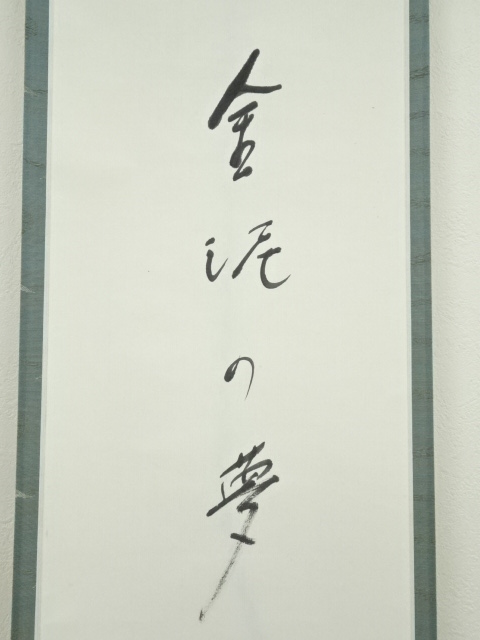 金泥の夢